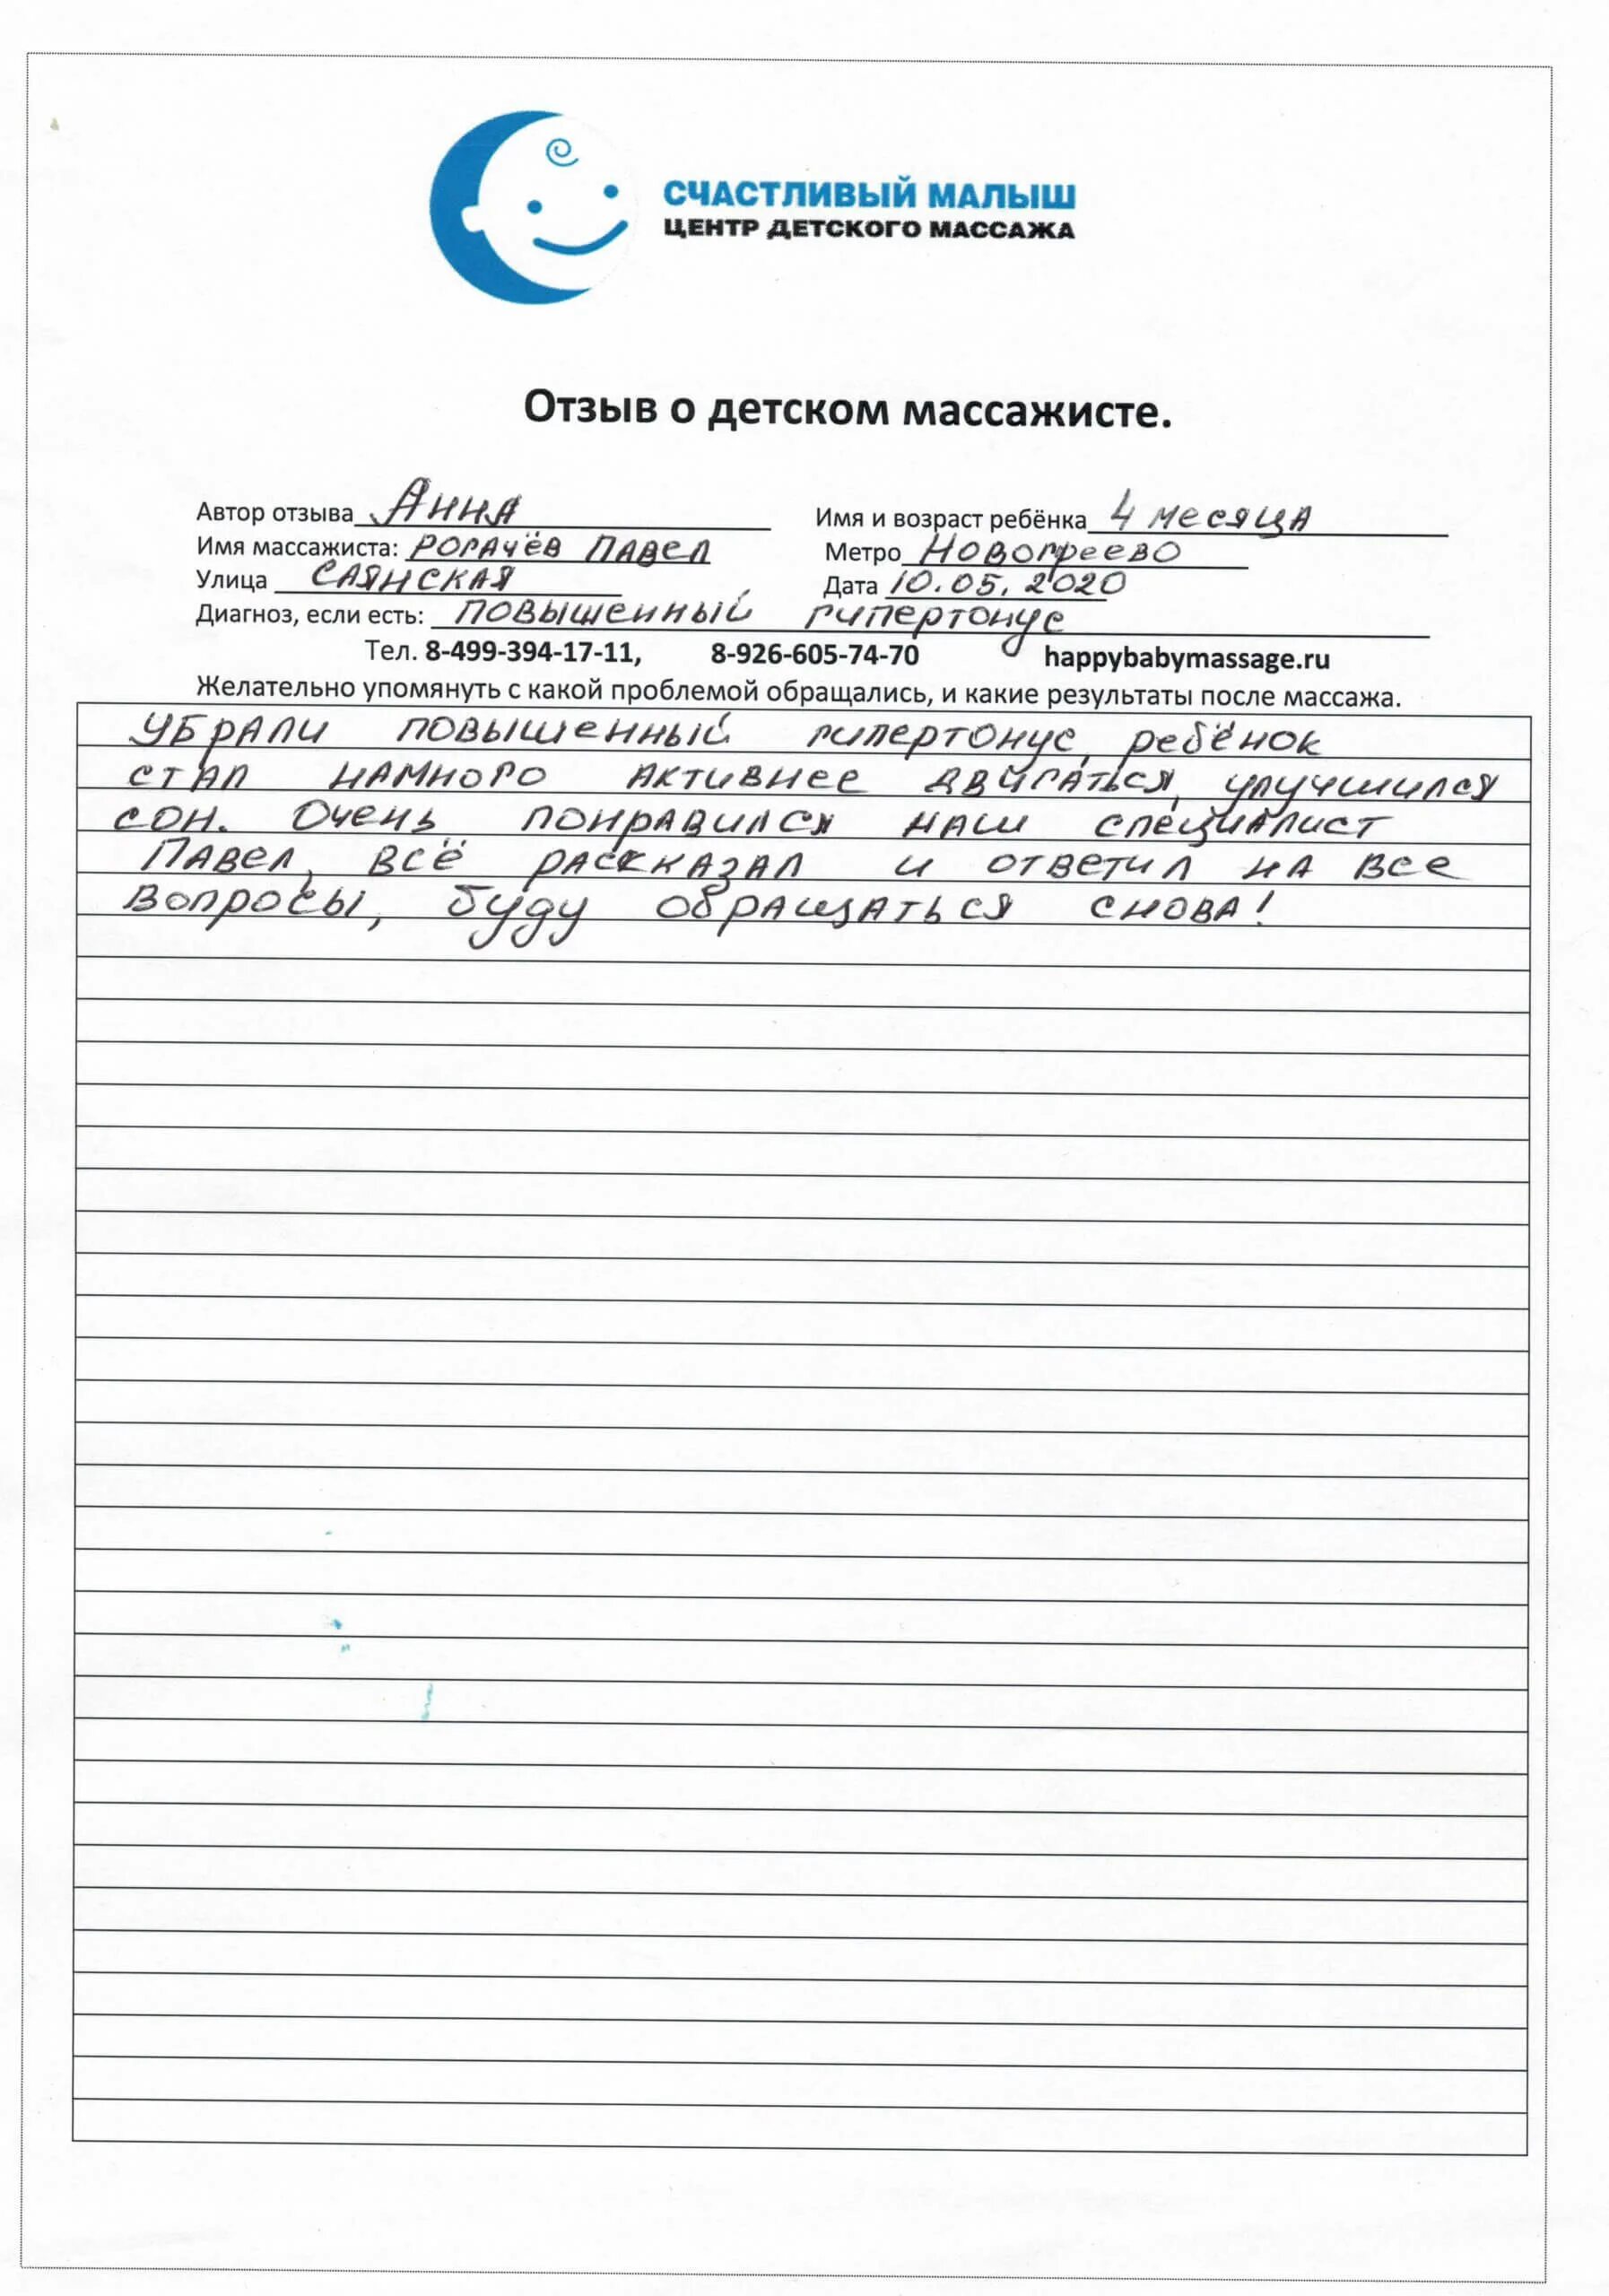 СЧАСТЛИВЫЙ МАЛЫШ
ЦЕНТР ДЕТСКОГО МАССАЖА
Отзыв о детском массажисте.
Автор отзыва Анна Имя и возраст ребёнка 4 месяца
Имя массажиста: Рогачёв Павел Метро Новогреево
Улица Саянская Дата 10.05.2020
Диагноз, если есть: повышенный гипертонус
Тел. 8-499-394-17-11, 8-926-605-74-70 happybabymassage.ru
Желательно упомянуть с какой проблемой обращались, и какие результаты после массажа.
Убрали повышенный гипертонус, ребёнок
стал намного активнее двигаться, улучшился
сон. Очень понравился наш специалист
Павел, всё рассказал и ответил на все
вопросы, буду обращаться снова!